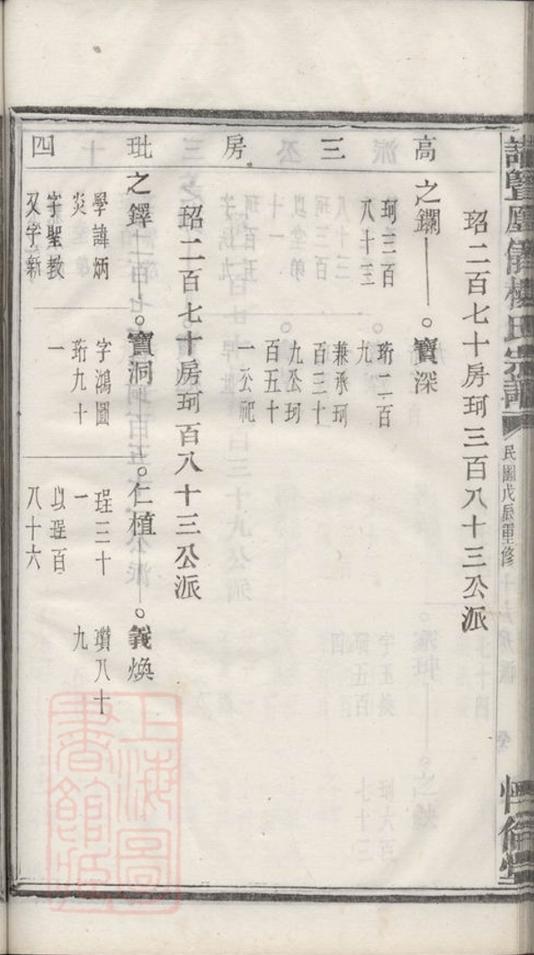 暨
楊氏宗譜
民國戊辰重修
高三房玭四
珆二百七十房珂三百八十三公派
之鐗
珂三百
八十三
寶深
珩二百
九
兼承珂
百三十
九公珂
百五十
一公祀
珆二百七十房珂百八十三公派
之鐸
學諱炳
炎
字聖教
又字新
寶洞
字鴻圖
珩九十
一
仁植
珵三十
一
以珵百
八十六
義煥
瓚八十
九
上海圖書館藏